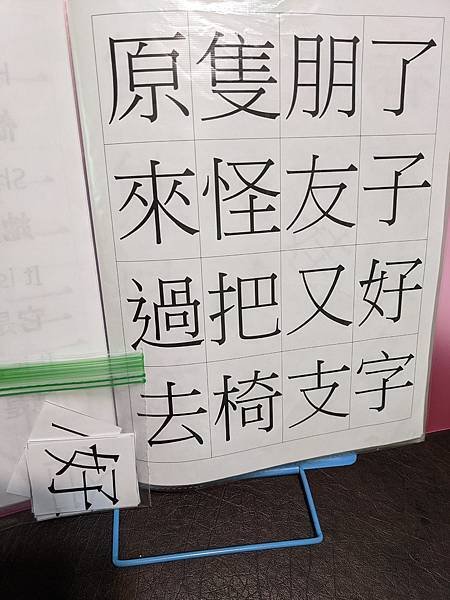 了子好字
朋友又支
隻怪把椅
原來過去
好